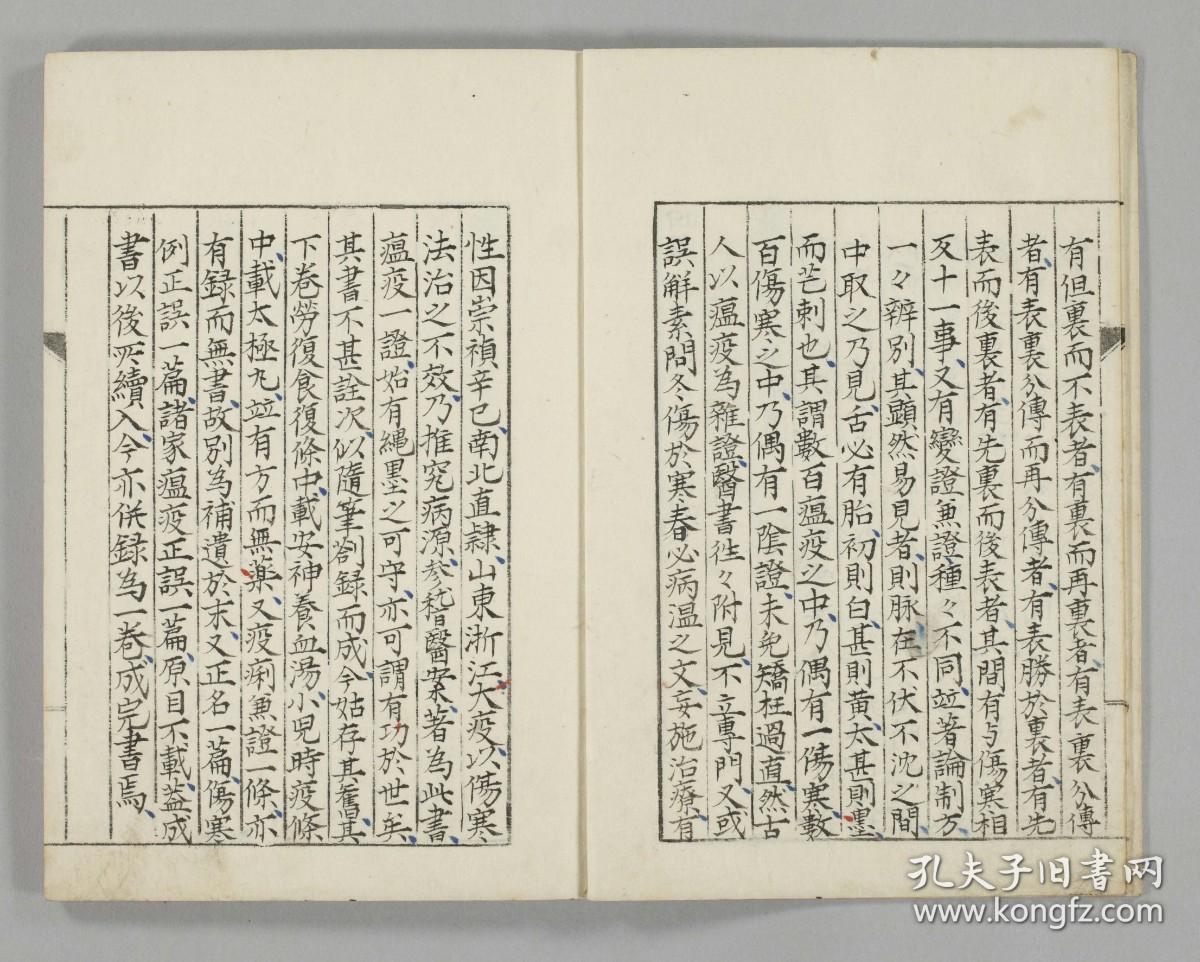 有但裏而不表者有裏而再裏者有表裏分傳
者有表裏分傳而再分傳者有表勝於裏者有先
表而後裏者有先裏而後表者其間有与傷寒相
反十一事又有變證兼證種々不同竝著論制方
一々辨別其顕然易見者則脉在不伏不沈之間
中取之乃見舌必有胎初則白甚則黄太甚則墨
而芒刺也其謂數百瘟疫之中乃偶有一傷寒數
百傷寒之中乃偶有一陰證未免矯枉過直然古
人以瘟疫為雜證醫書徃々附見不立專門又或
誤解素問冬傷於寒春必病温之文妄施治療有
性因崇禎辛巳南北直隷山東浙江大疫以傷寒
法治之不效乃推究病源參稽醫案著為此書
瘟疫一證始有繩墨之可守亦可謂有功於世矣
其書不甚詮次似隨筆劄録而成今姑存其舊其
下卷勞復食復條中載安神養血湯小児時疫條
中載太極丸竝有方而無藥又疫痢兼證一條亦
有録而無書故别為補遺於末又正名一篇傷寒
例正誤一篇諸家瘟疫正誤一篇原目不載葢成
書以後所續入今亦併録為一卷成完書焉
孔夫子旧书网
www.kongfz.com